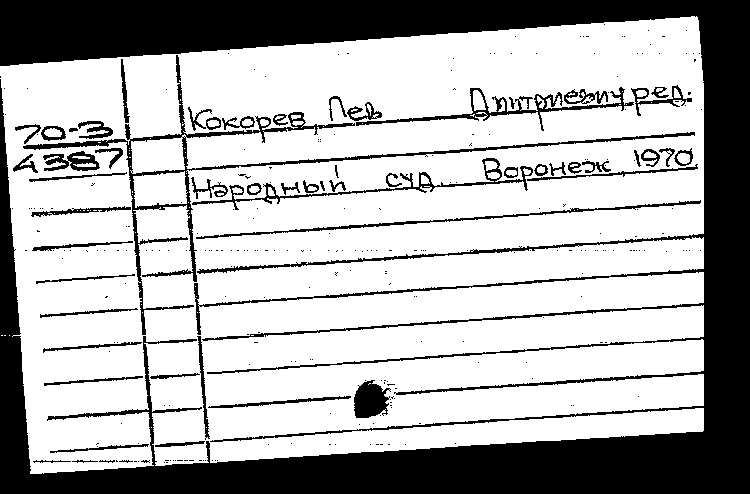 70-3
4387
Кокорев, Лев Дмитриевич, ред.
Народный суд. Воронеж, 1970.